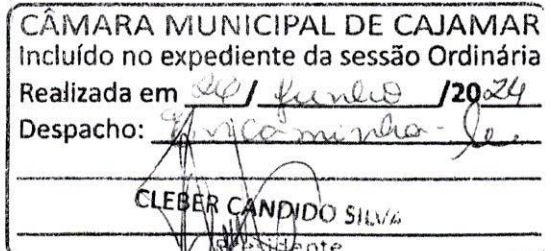 CÂMARA MUNICIPAL DE CAJAMAR
Incluído no expediente da sessão Ordinária
Realizada em / junho /2024
Despacho: Encaminha-se.
CLEBER CANDIDO SILVA
Presidente